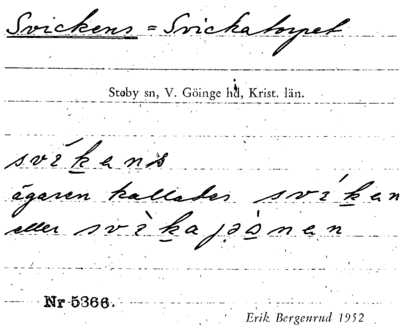 Svickens = Svickatorpet
Stoby sn, V. Göinge hd, Krist. län.
svìkens
ägaren kallades svíken
eller svìkajònen
Nr 5366.
Erik Bergenrud 1952